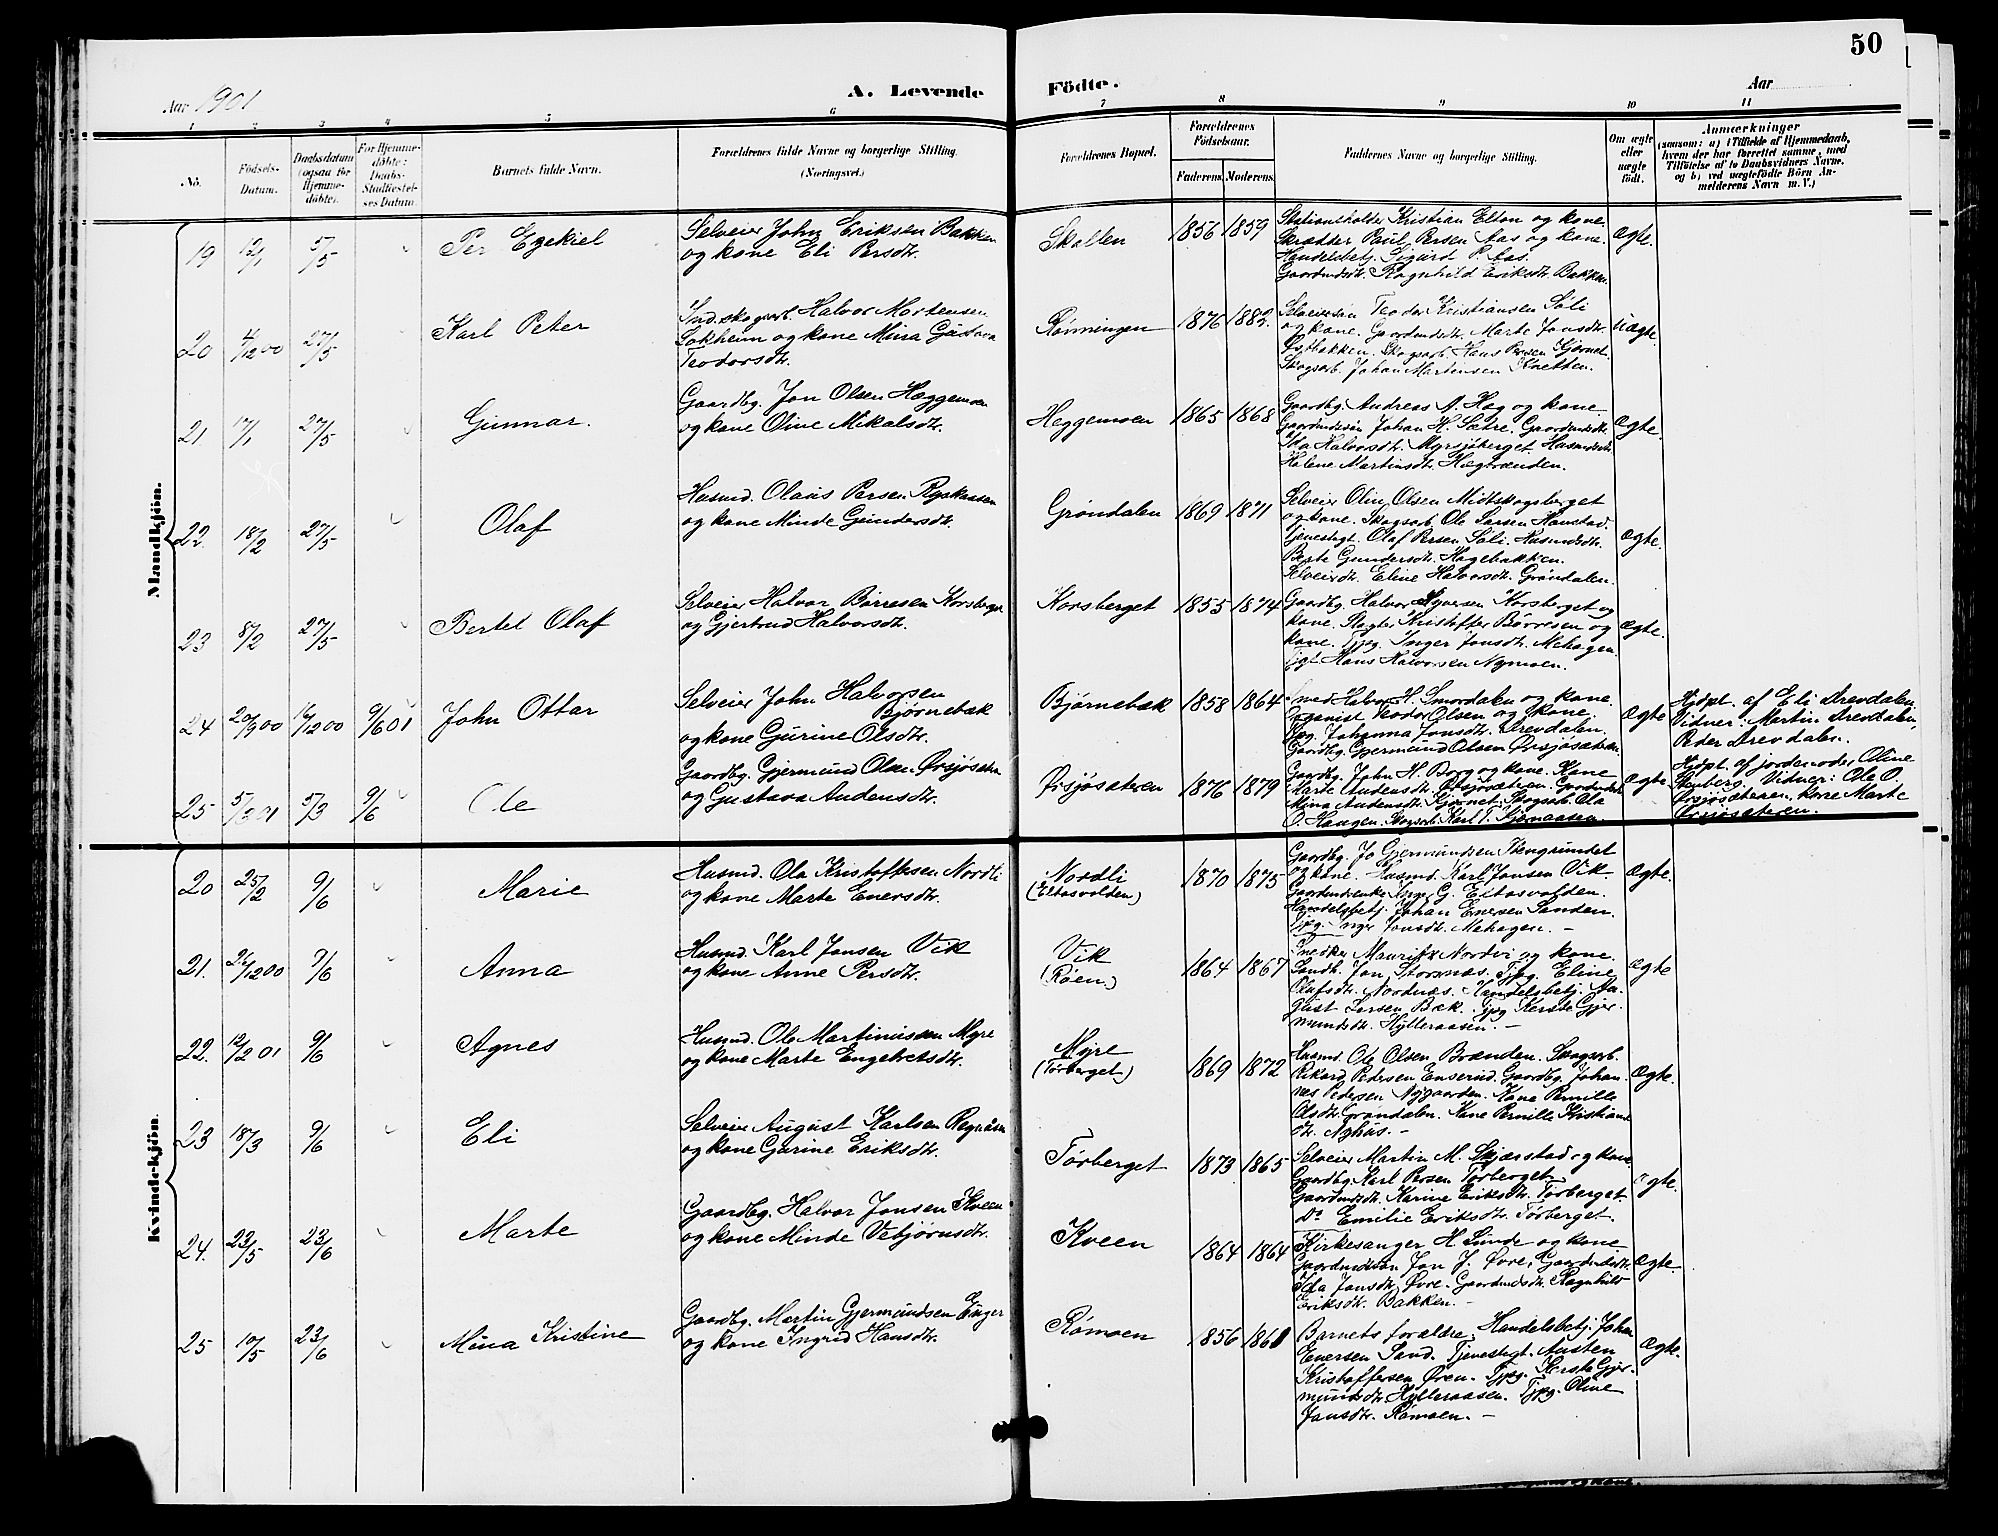 50
Aar 1901
A. Levende Födte.
Aar
1 2 3 4 5 6 7 8 9 10 11
No.
Födsels-Datum.
Daabsdatum (ogsaa for Hjemme-döbte).
For Hjemme-döbte: Daabs-Stadfæstel-ses Datum.
Barnets fulde Navn.
Forældrenes fulde Navne og borgerlige Stilling. (Næringsvei.)
Forældrenes Bopæl.
Forældrenes Födselsaar.
Faderens. Moderens.
Faddernes Navne og borgerlige Stilling.
Om ægte eller uægte födt.
Anmærkninger
(saasom: a) i Tilfælde af Hjemmedaab,
hvem der har forrettet samme, med
Tilföielse af to Daabsvidners Navne,
og b) ved uægtefödte Börn An-
melderens Navn m. V.)
Mandkjön.
19 12/1 5/5 Per Ezekiel
Selveier John Eriksen Bakken
og kone Eli Persdtr.
Skallen 1856 1859
Stationsholder Kristian Elton og kone.
Skrædder Paul Persen Aas og kone.
Handelsbetj. Sigurd P. Aas.
Gaardmdsdtr. Ragnhild Eriksdtr. Bakken.
Ægte.
20 4/12 00 27/5 Karl Peter
Ind. skogsarb. Halvor Mortensen
Løkheim og kone Mina Gustava
Teodorsdtr.
Rønningen 1876 1882.
Selveiersøn Teodor Kristiansen Søli
og kone. Gaardmdsdtr. Marte Jonsdtr.
Østbakken. Skogsarb. Hans Persen Kjernet
Skogsarb. Johan Martensen Knetten.
Uægte.
21 17/1 27/5 Gunnar.
Gaardbg. Jon Olsen Heggemoen
og kone Oline Mikalsdtr.
Heggemoen 1865 1868
Gaardbg. Andreas A. Hæg og kone.
Gaardmdssøn Johan H. Sætre. Gaardmdsdtr.
Ida Halvorsdtr. Myrsjøberget. Husmdsdtr.
Halene Martinsdtr. Hægbrænden.
Ægte.
22. 18/2 27/5 Olaf
Husmd. Olaus Persen Ryskaasen
og kone Minde Gundersdtr.
Grøndalen 1869 1871
Selveier Olin Olsen Midtskogsberget
og kone. Skogsarb. Ole Larsen Hanstad.
Tjenestegt. Olaf Persen Søli. Husmdsdtr.
Berte Gundersdtr. Hagebakken.
Selveierdtr. Eline Halvorsdtr. Grøndalen.
Ægte.
23 8/2 27/5 Bertel Olaf
Selveier Halvor Børresen Korsberget
og Gjertrud Halvorsdtr.
Korsberget 1855 1874
Gaardbg. Halvor Syversen Korsberget og
kone. Slagter Kristoffer Børresen og
kone. Tjpg. Inger Jonsdtr. Mehagen.
Tjgt Hans Halvorsen Nymoen.
Ægte.
24 20/9 00 16/12 00 9/6 01 John Ottar
Selveier John Halvorsen
Bjørnebæk
og kone Gurine Olsdtr.
Bjørnebæk 1858 1864
Smed Halvor H. Smordalen og kone.
Organist Teodor Olsen og kone.
Tjpg. Johanna Jonsdtr. Drevdalen.
Gaardbg. Gjermund Olsen Ørsjøsætren
Ægte
Hjdpt. af Eli Drevdalen.
Vidner: Martin Drevdalen,
Peder Drevdalen.
25 5/3 01 5/3 9/6 Ole
Gaardbg. Gjermund Olsen Ørsjøsætren
og Gustava Andensdtr.
Ørsjøsæteren 1876 1879
Gaardbg. John H. Borg og kone. Kone
Marte Andensdtr. Ørsjøsætren. Gaardmdsdtr.
Mina Andensdtr. Kjernet. Skogsarb. Ola
O. Haugen. Skogsarb. Karl T. Kjernaasen.
Ægte
Hjdpt. af jordemoder Oline
Stenberg. Vidner: Ole O.
Ørsjøsæteren, kone Marte
Ørsjøsæteren.
Kvind-kjön.
20 25/2 9/6 Marie
Husmd. Ola Kristoffersen Nordli
og kone Marte Enersdtr.
Nordli
(Eltasvolden) 1870 1875
Gaardbg. Jo Gjermundsen Stengrundet
og kone. Husmd. Karl Jonsen Vik.
Gaardmdsenke Inger G. Eltasvolden.
Handelsbetj. Johan Enersen Sanden.
Tjpg. Inger Jonsdtr. Mehagen. –
Ægte.
21. 26/12 00 9/6 Anna
Husmd. Karl Jonsen Vik
og kone Anne Persdtr.
Vik
(Røen.) 1864 1867
Snedker Mauritz Nordvi og kone.
Landh. Jon Stornæs. Tjpg. Eline
Olufsdtr. Nordnæs. Handelsbetj. Au-
gust Larsen Bæk. Tjpg Kerste Gjer-
mundsdtr. Hylleraasen. –
Ægte
22. 12/2 01 9/6 Agnes
Husmd. Ole Martinussen Myre
og kone Marte Engebretsdtr.
Myre
(Tørberget.) 1869 1872
Husmd. Ole Olsen Brænden. Skogsarb.
Rikard Pedersen Enserud. Gaardbg. Johan-
nes Pedersen Nygaarden. Kone Pernille
Olsdtr. Grøndalen. Kone Pernille Kristians
dtr. Nyhus. –
Ægte.
23 18/3 9/6 Eli
Selveier August Karlsen Regnåsen
og kone Gurine Eriksdtr.
Tørberget 1873 1865
Selveier Martin M. Skjærstad og kone.
Gaardbg. Karl Persen Tørberget.
Gaardmdsdtr. Karine Eriksdtr. Tørberget.
Do Emilie Eriksdtr. Tørberget.
Ægte.
24. 23/5 23/6 Marte
Gaardbg. Halvor Jonsen Kveen
og kone Minde Vebjørnsdtr.
Kveen 1864 1864
Kirkesanger H. Sunde og kone.
Gaardmdssøn Jon J. Øvre, Gaardmdsdtr.
Ida Jonsdtr. Øvre. Gaardmdsdtr. Ragnhild
Eriksdtr. Bakken. –
Ægte.
25 10/5 23/6 Mina Kristine
Gaardbg. Martin Gjermundsen Enger
og kone Ingrid Hansdtr.
Rømoen 1856 1861
Barnets forældre. Handelsbetj. Johan
Enersen Sand. Tjenestegt. Austen
Kristoffersen Øren. Tjpg. Kerste Gjer-
mundsdtr. Hylleraasen. Tjpg. Oline
Jonsdtr. Rømoen. –
Ægte.